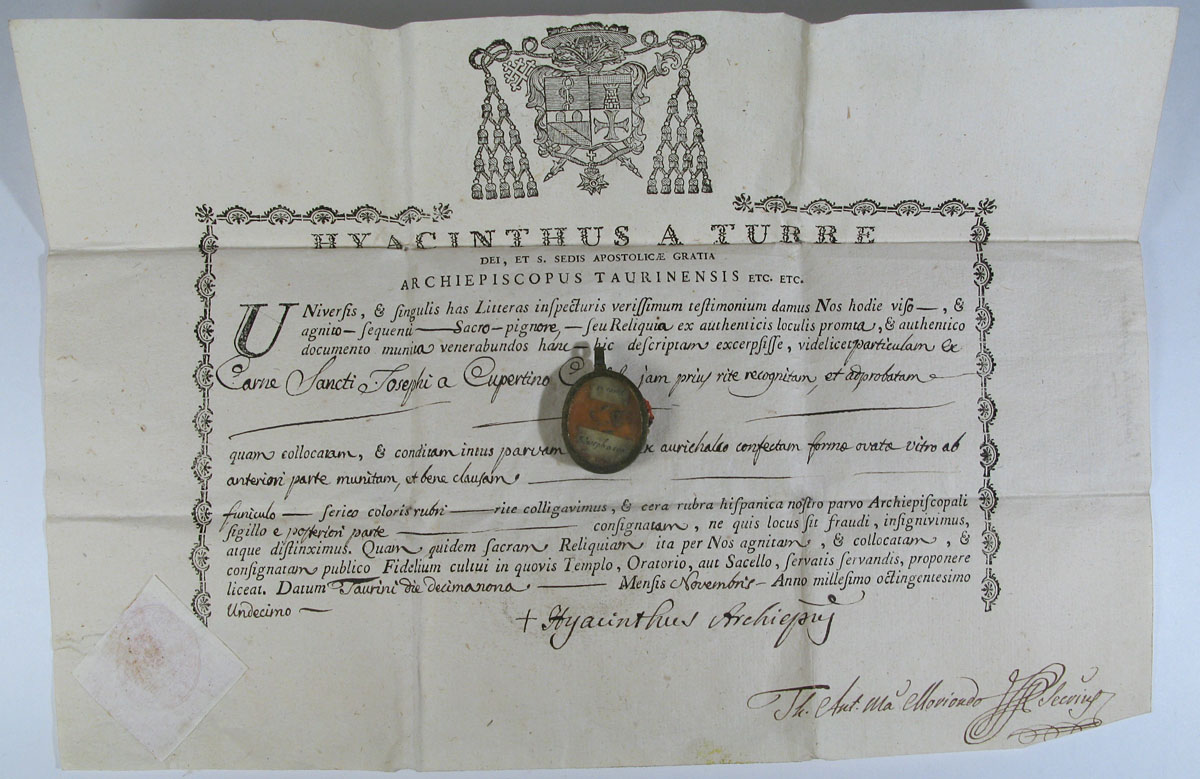 HYACINTHUS A TURRE
DEI, ET S. SEDIS APOSTOLICÆ GRATIA
ARCHIEPISCOPUS TAURINENSIS ETC. ETC.
UNiversis, & singulis has Litteras inspecturis verissimum testimonium damus Nos hodie viso —, &
agnito — sequenti — Sacro — pignore, — seu Reliquia ex authenticis loculis promta, & authentico
documento munita venerabundos hanc — hic descriptam excerpsisse, videlicet particulam ex
Carne Sancti Josephi a Cupertino jam prius rite recognitam et adprobatam —
quam collocatam, & conditam intus parvam ex aurichalco confectam formæ ovatæ vitro ab
anteriori parte munitam, et bene clausam —
funiculo — serico coloris rubri — rite colligavimus, & cera rubra hispanica nostro parvo Archiepiscopali
sigillo e posteriori parte — consignatam, ne quis locus sit fraudi, insignivimus,
atque distinximus. Quam quidem sacram Reliquiam ita per Nos agnitam, & collocatam, &
consignatam publico Fidelium cultui in quovis Templo, Oratorio, aut Sacello, servatis servandis, proponere
liceat. Datum Taurini die decimanona — Mensis Novembris — Anno millesimo octingentesimo
Undecimo —
+ Hyacinthus Archiepus
Th. Ant. Ma Moriondo Secrius